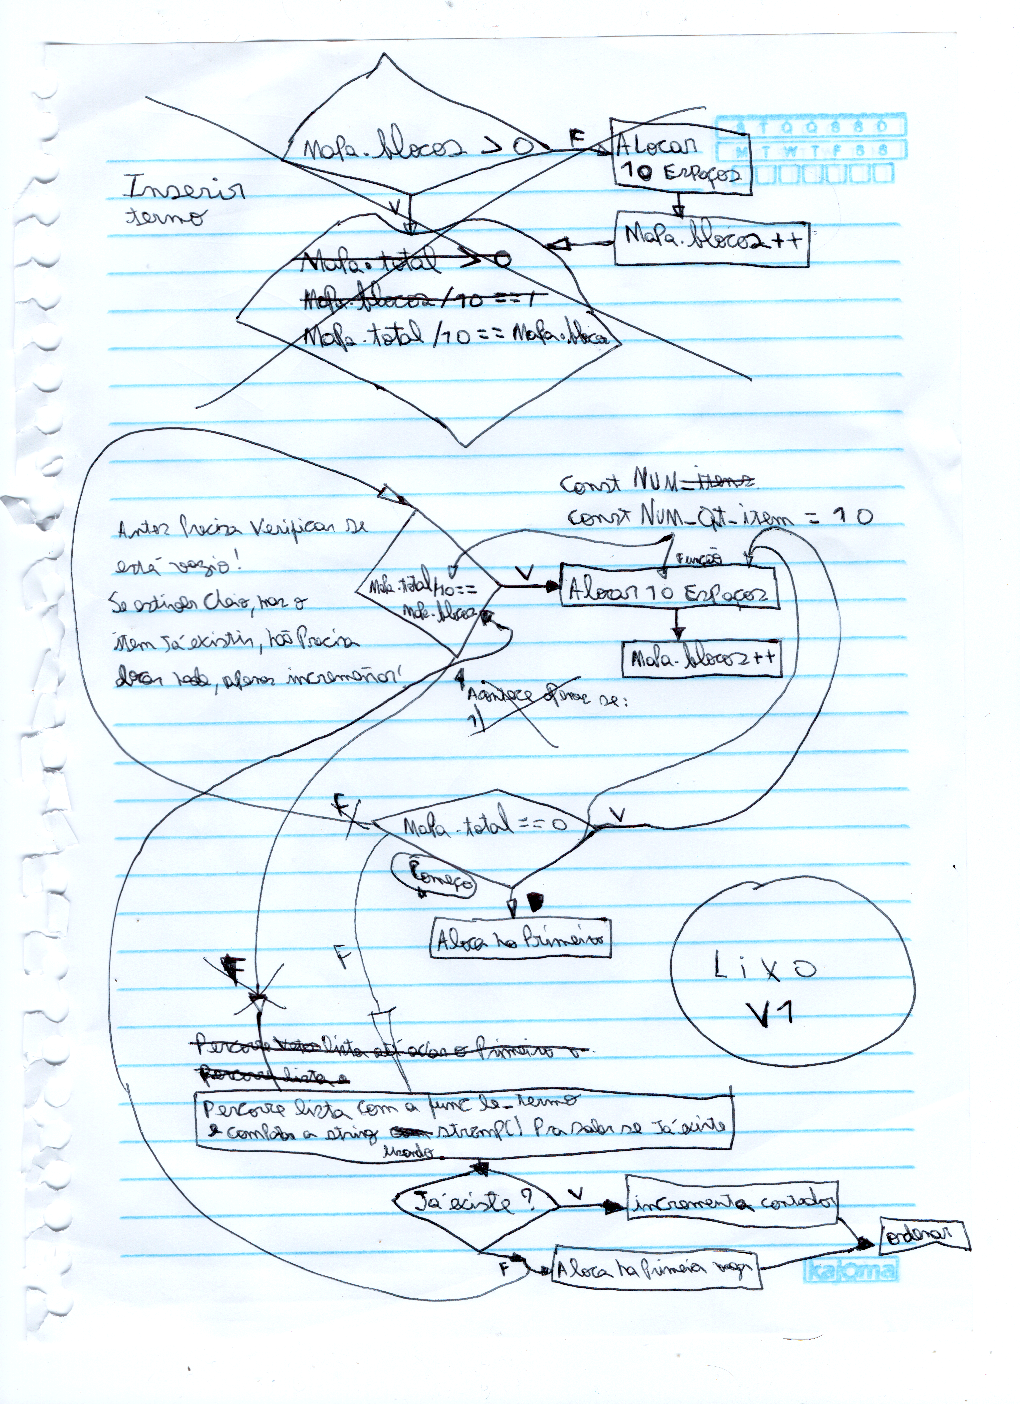 Mapa.blocos > 0
F
Alocar
10 Espaços
S T Q Q S S D
M T W T F S S
Inserir
termo
V
Mapa.blocos++
Mapa.total > 0
Mapa.blocos /10 == 1
Mapa.total /10 == Mapa.bloco
const NUM_itens
const NUM_Qt_item = 10
Antes Precisa Verificar se
está vazio!
Se estiver cheio, mas o
item Já existir, não Precisa
alocar nada, apenas incrementar!
Mapa.total/10 ==
Mapa.blocos
V
Função
Alocar 10 Espaços
Mapa.blocos++
Acontece apenas se:
1)
F
Mapa.total == 0
V
Começo
Aloca no Primeiro
F
F
Lixo
V1
Percorre lista até achar o Primeiro
Percorre lista e
Percorre lista com a func le_termo
e compara a string strcmp() Pra saber se Já existe
usando
Já existe?
V
incrementa contador
ordenar
F
Aloca na Primeira vaga
kajoma